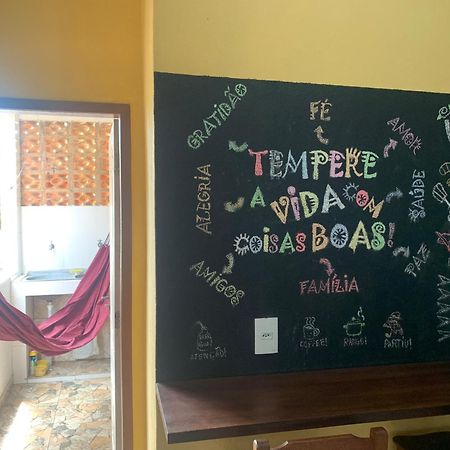 GRATIDÃO
FÉ
AMOR
TEMPERE
A VIDA COM
COISAS BOAS!
ALEGRIA
SAÚDE
PAZ
AMIGOS
FAMÍLIA
ATENÇÃO!
COFFEE!
RANGO!
PARTIU!